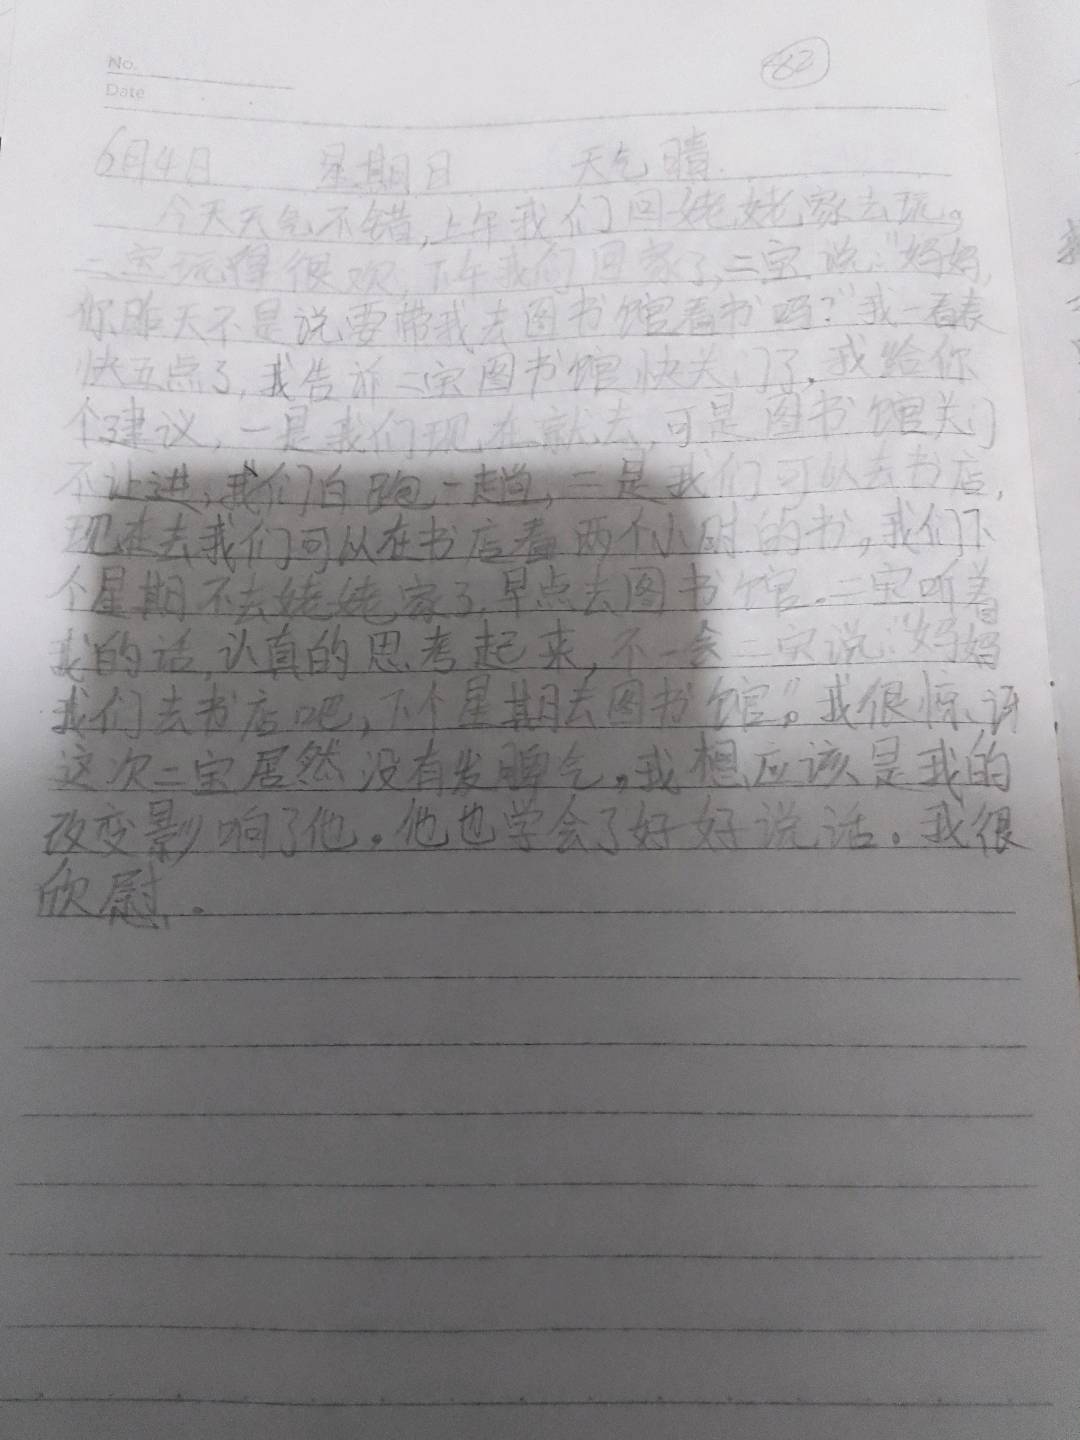 No.
82
Date
6月4日 星期日 天气晴.
今天天气不错,上午我们回姥姥家去玩。
二宝玩得很欢,下午我们回家了,二宝说:"妈妈,
你昨天不是说要带我去图书馆看书吗?"我一看表
快五点了,我告诉二宝图书馆快关门了,我给你
个建议,一是我们现在就去,可是图书馆关门
不让进,我们白跑一趟,二是我们可以去书店,
现在去我们可以在书店看两个小时的书,我们下
个星期不去姥姥家了,早点去图书馆.二宝听着
我的话,认真的思考起来,不一会二宝说:"妈妈
我们去书店吧,下个星期去图书馆"。我很惊讶
这次二宝居然没有发脾气,我想应该是我的
改变影响了他.他也学会了好好说话.我很
欣慰.